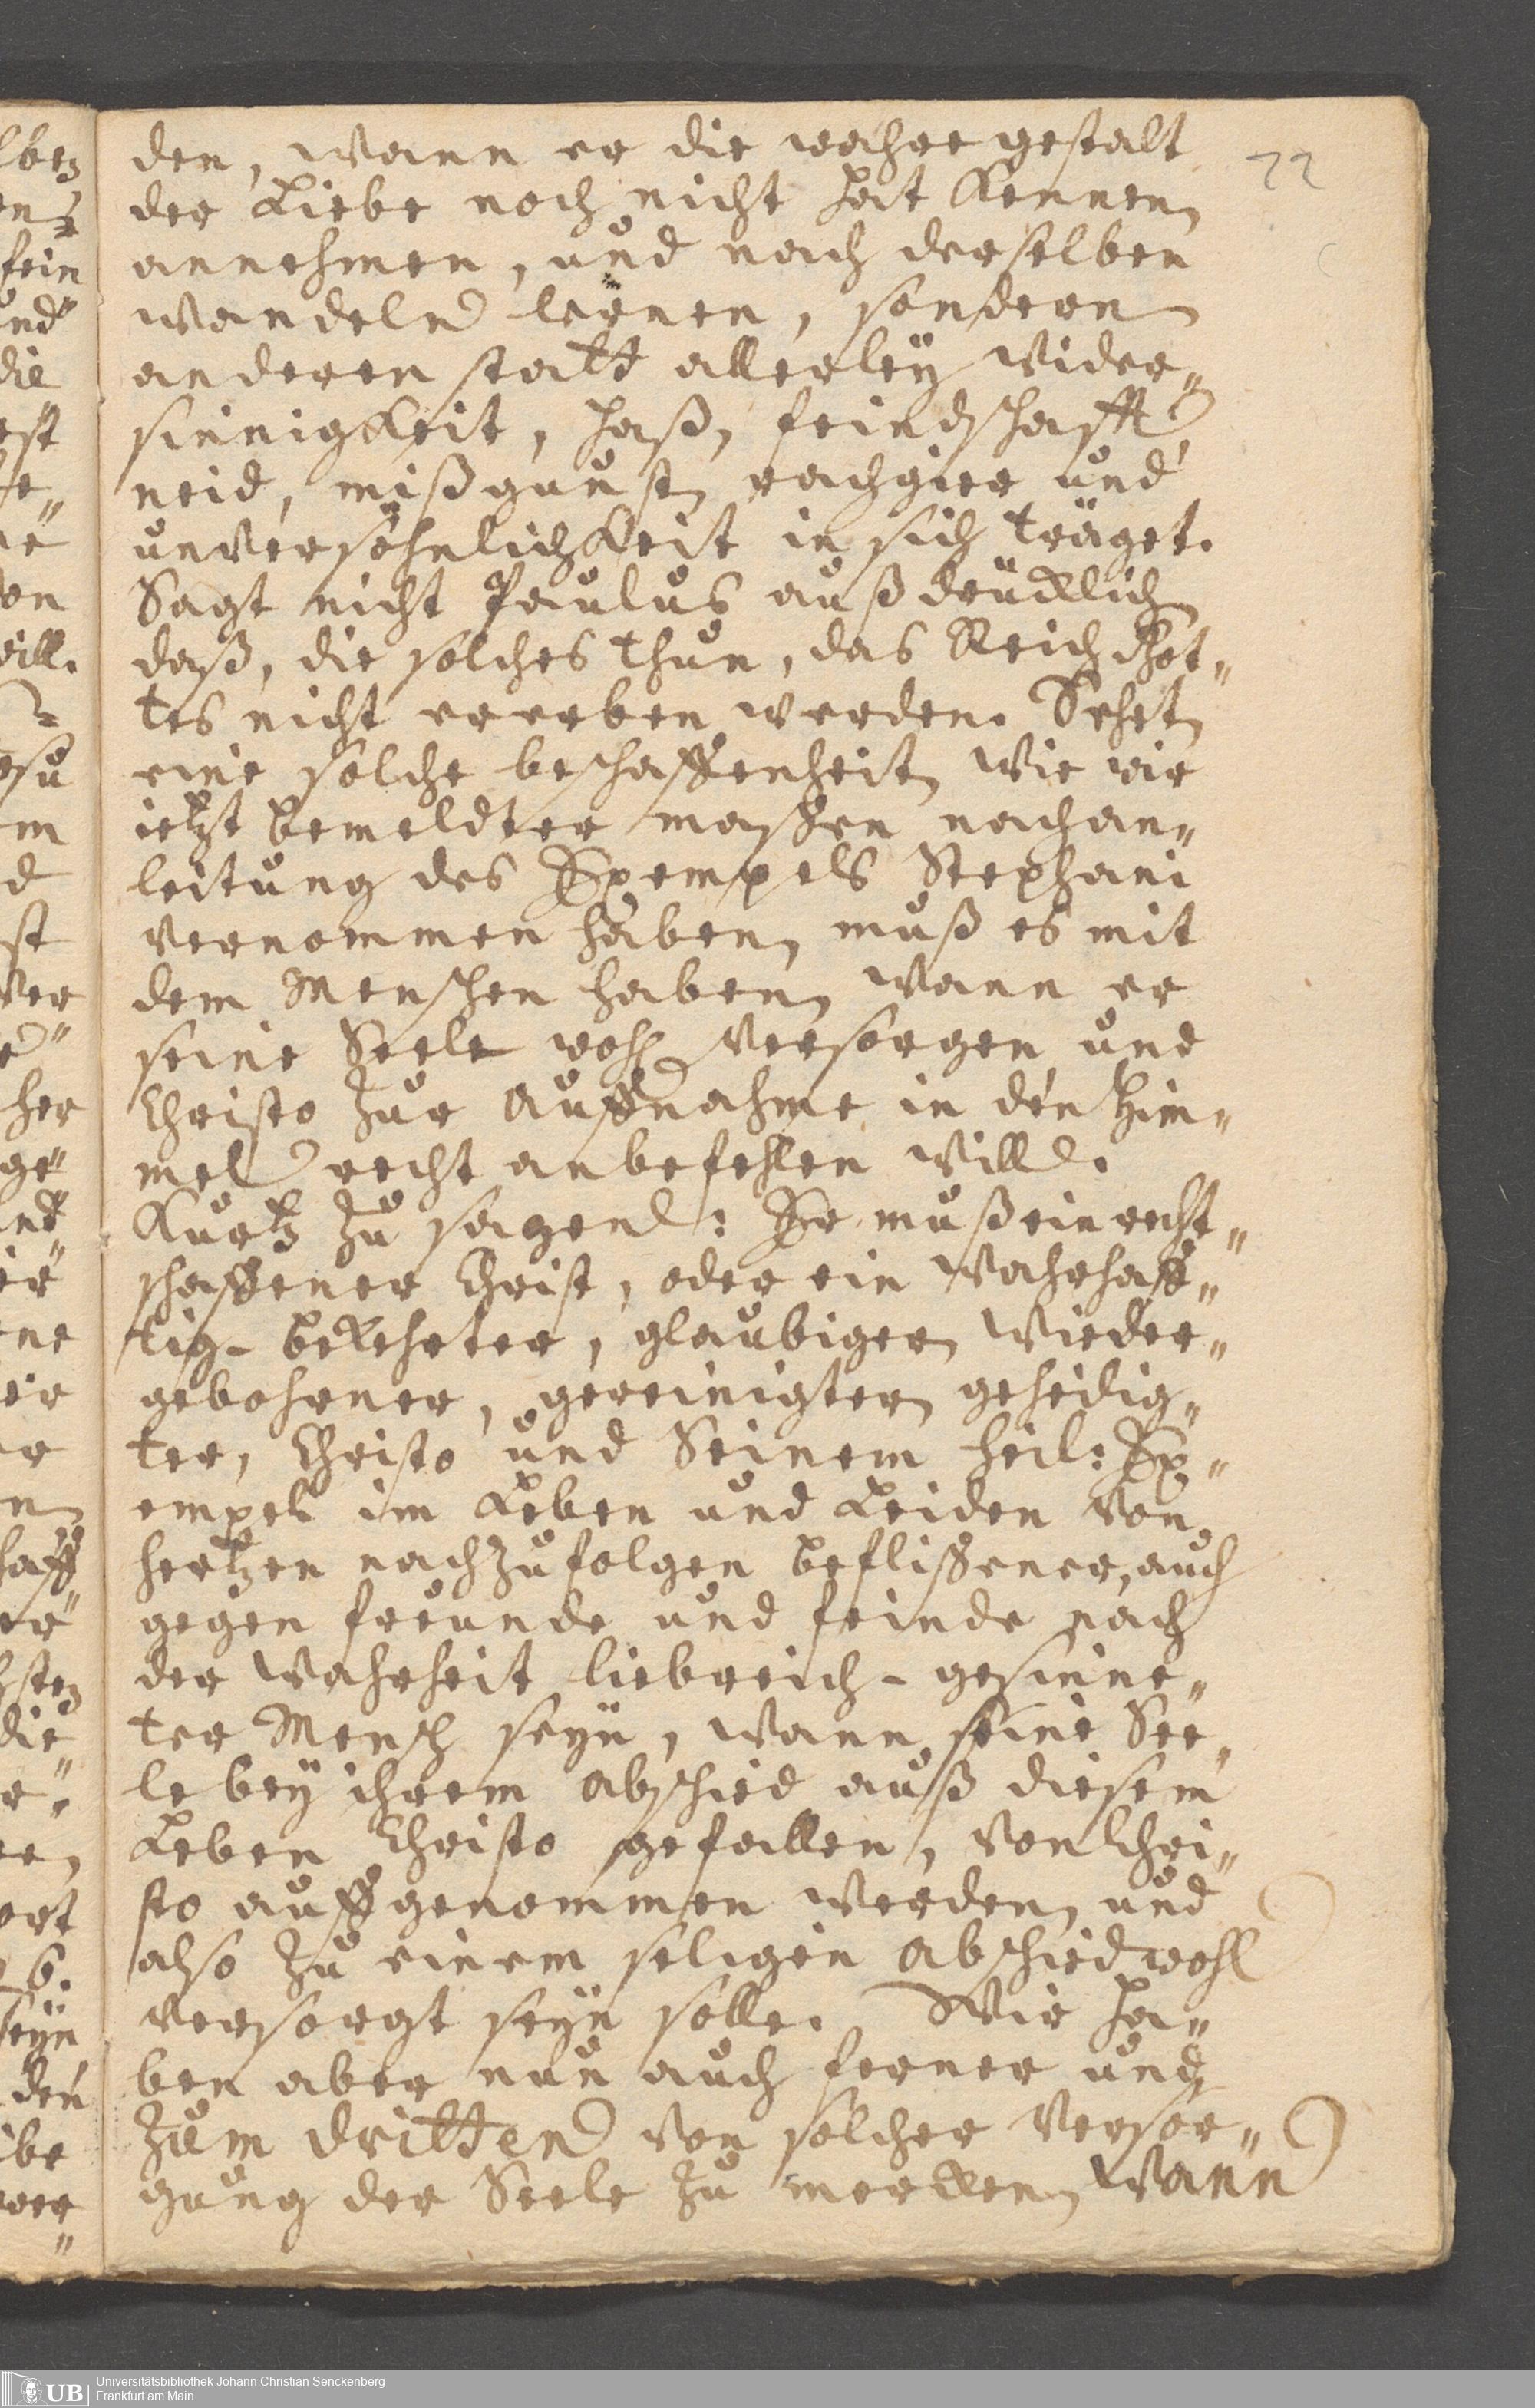 den, wann er die wahre gestalt
22
der Liebe noch nicht hat kennen,
annehmen, und nach derselben
wandeln lernen, sondern
anderen statt allerleÿ wider„
sinnigkeit, haß, feindschafft,
neid, mißgunst, rachgier und
unversöhnlichkeit in sich träget.
Sagt nicht Paulus außdrücklich,
daß, die solches thun, das Reich Got„
tes nicht ererben werden. Sehet,
eine solche beschaffenheit, wie wir
ietzt bemeldter maßen nach an„
leitung des Exempels Stephani
vernommen haben, muß es mit
dem Menschen haben, wann er
seine Seele wohl versorgen und
Christo zur auffnahme in den Him„
mel recht anbefehlen will.
Kurtz zu sagen: Er muß ein recht„
schaffener Christ, oder ein wahrhaff„
tig-bekehrter, glaubiger, wieder„
gebohrner, gereinigter, geheilig„
ter, Christo und Seinem heil: Ex„
empel im Leben und Leiden von
hertzen nachzufolgen beflißener, auch
gegen freunde und feinde nach
der wahrheit liebreich-gesinne„
ter Mensch seÿn, wann seine See„
le beÿ ihrem abschied auß diesem
Leben Christo gefallen, von Chri„
sto auffgenommen werden, und
also zu einem seligen abschied wohl
versorgt seÿn solle. Wir ha„
ben aber nun auch ferner und
zum dritten von solcher versor„
gung der Seele zu mercken, wann
Universitätsbibliothek Johann Christian Senckenberg
Frankfurt am Main
UB